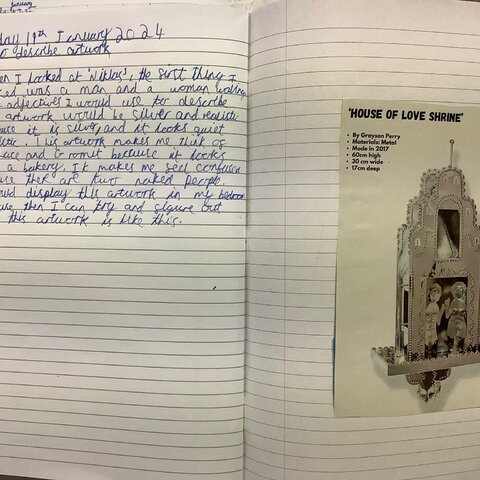 January
day 19th January 2024
to describe artwork
en I looked at 'Niklas', the first thing I
ced was a man and a woman
adjectives I would use to describe
artwork would be silver and realistic
use it is silver and it looks quiet
listic. This artwork makes me think of
ace and Gromit because it looks
a bakery. It makes me feel confused
use thier are two naked people
ould display this artwork in my bedroom
ause then I can try and figure out
this artwork is like this.
'HOUSE OF LOVE SHRINE'
• By Grayson Perry
• Materials: Metal
• Made in 2017
• 60cm high
• 30 cm wide
• 17cm deep